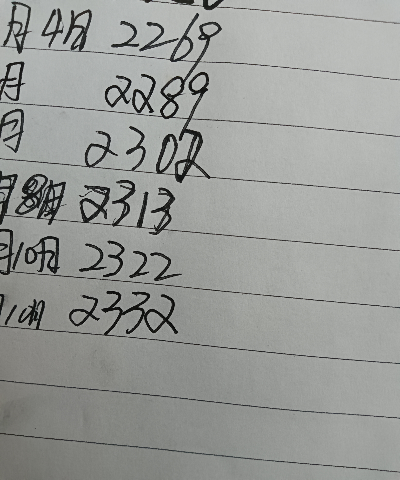 月4月 2269
月 2289
月 2302
月8月 2313
月10月 2322
2332